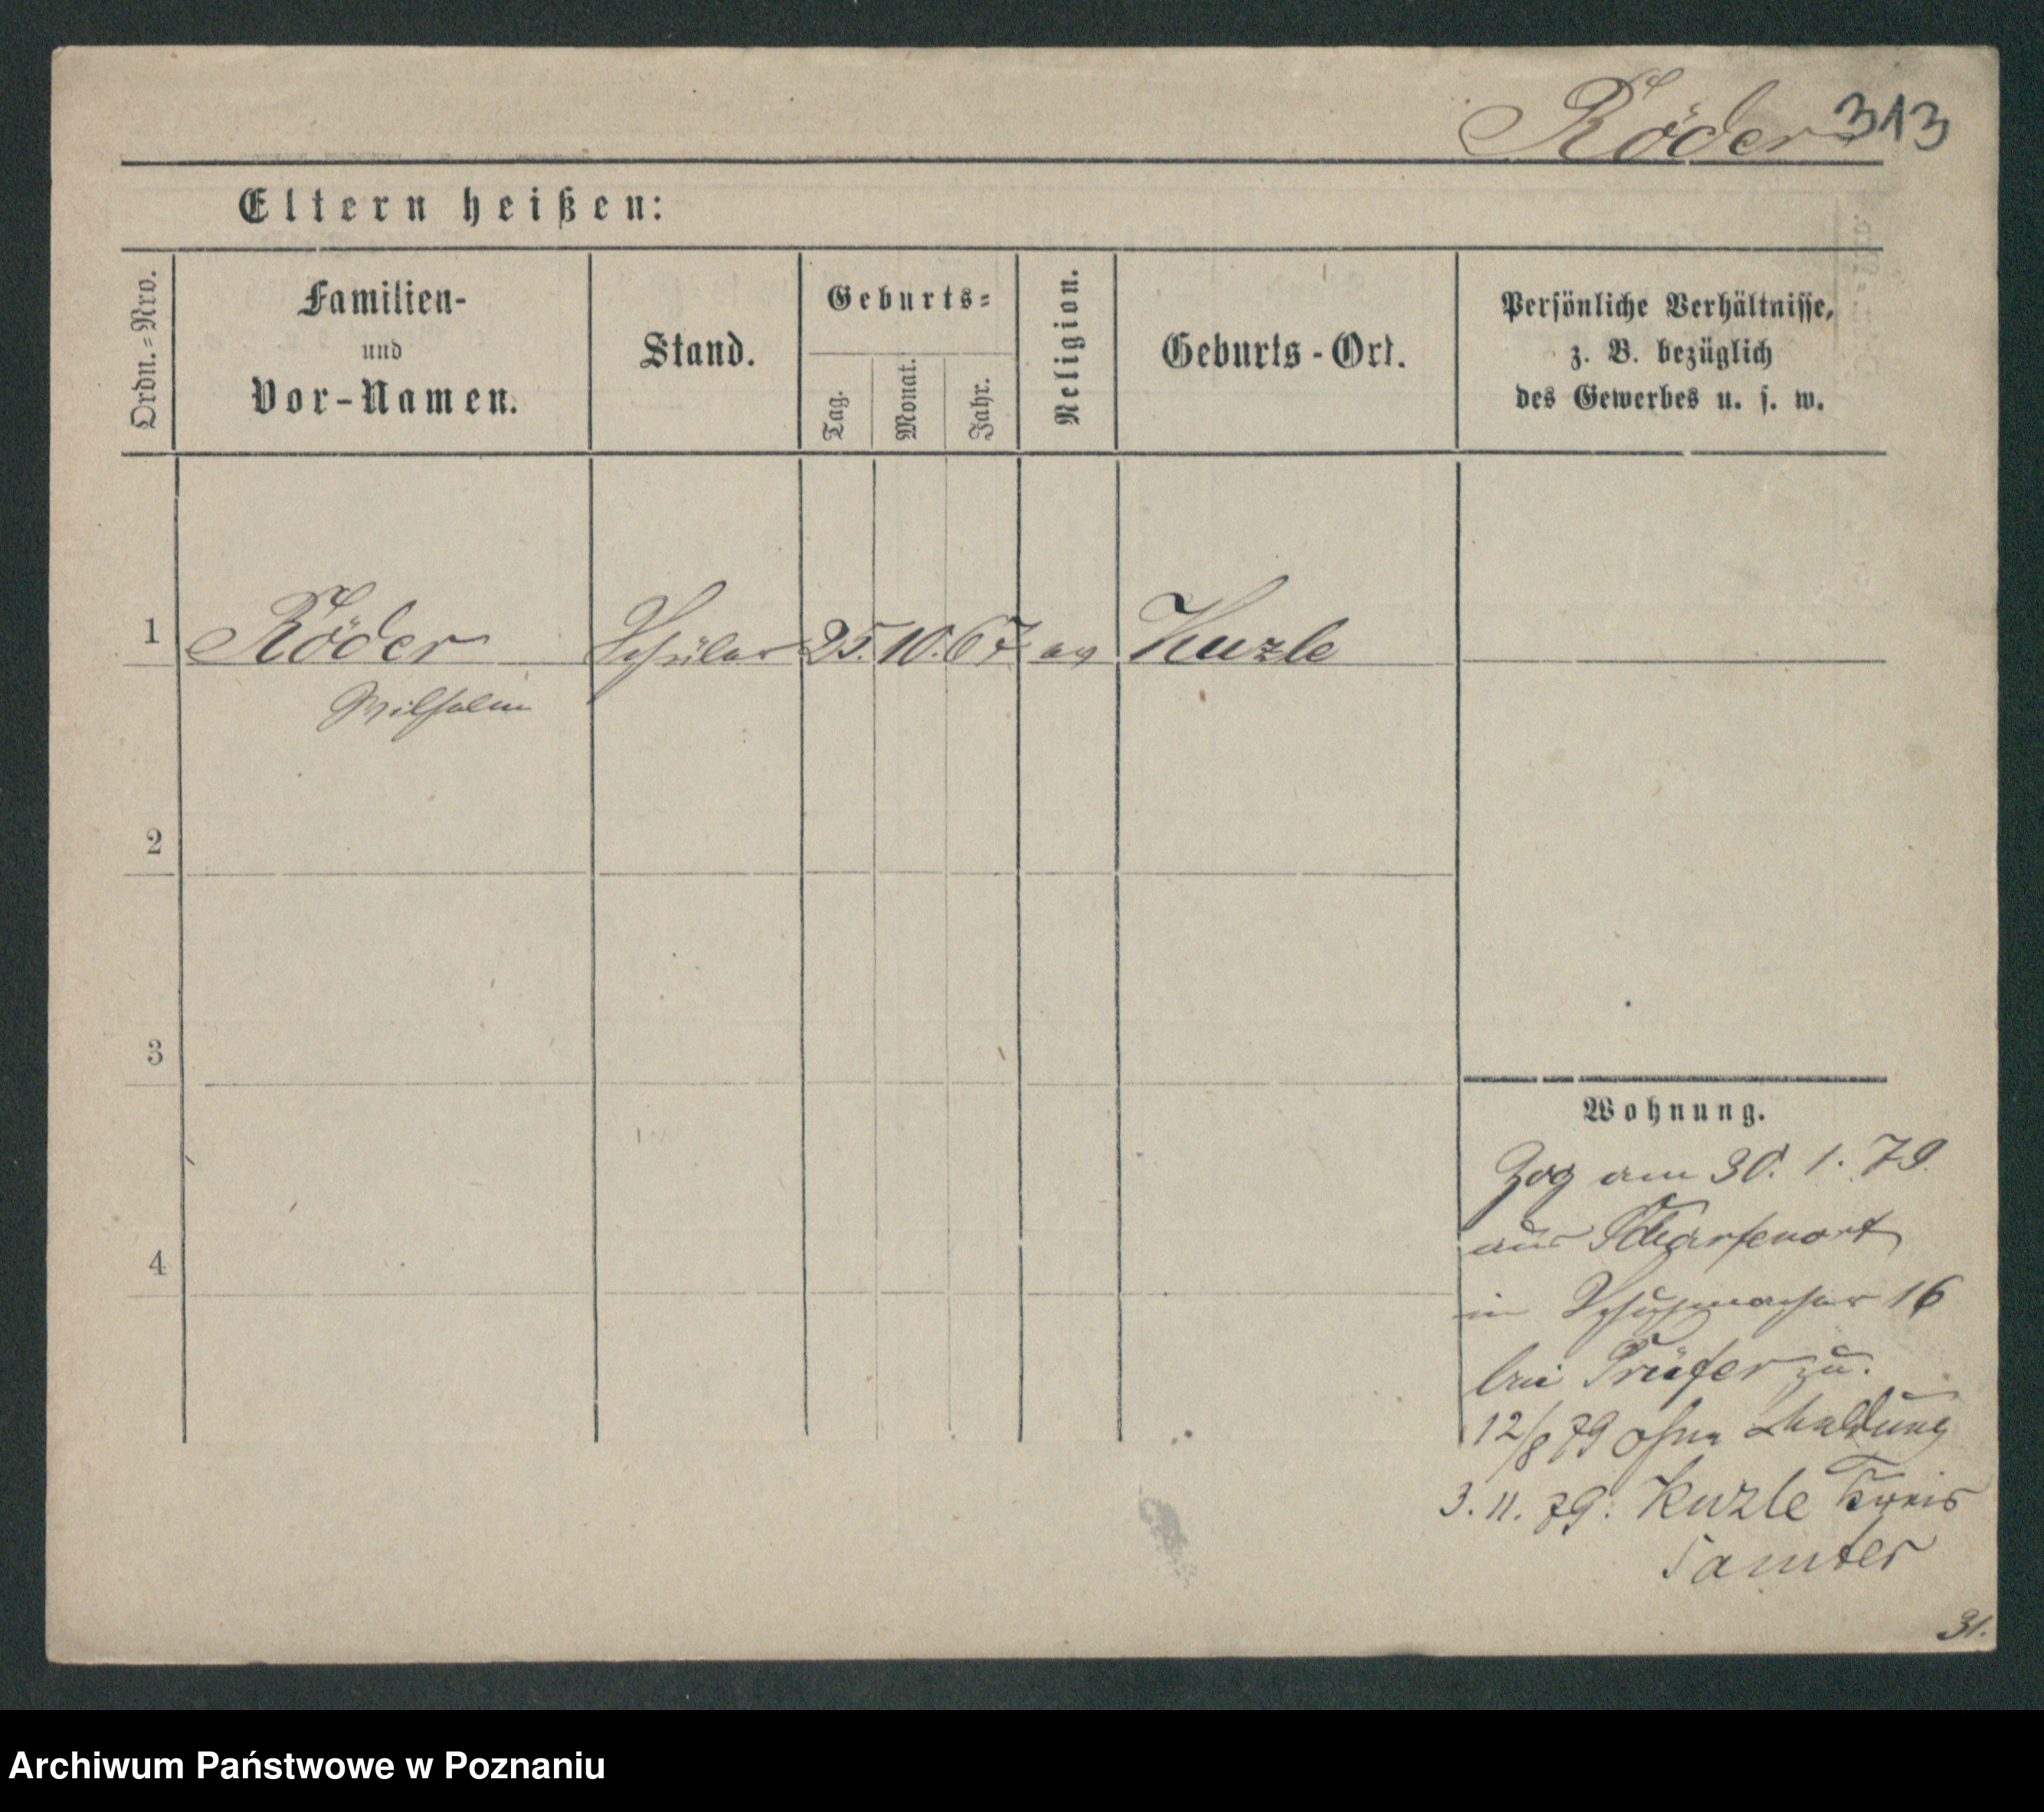 Röder 313
Eltern heißen:
Ordn.=Nro.
Familien-
und
Vor-Namen.
Stand.
Geburts=
Tag.
Monat.
Jahr.
Religion.
Geburts-Ort.
Persönliche Verhältnisse,
z. B. bezüglich
des Gewerbes u. s. w.
1 Röder Schüler 25. 10. 67 ev Kuzle
Wilhelm
2
3
4
Wohnung.
Zog am 30. 1. 79.
aus Scharfenort
in Schuhmacher 16
bei Prüfer zu.
12/8 79 ohne Meldung
3. 11. 79: Kuzle Kreis
Samter
31.
Archiwum Państwowe w Poznaniu